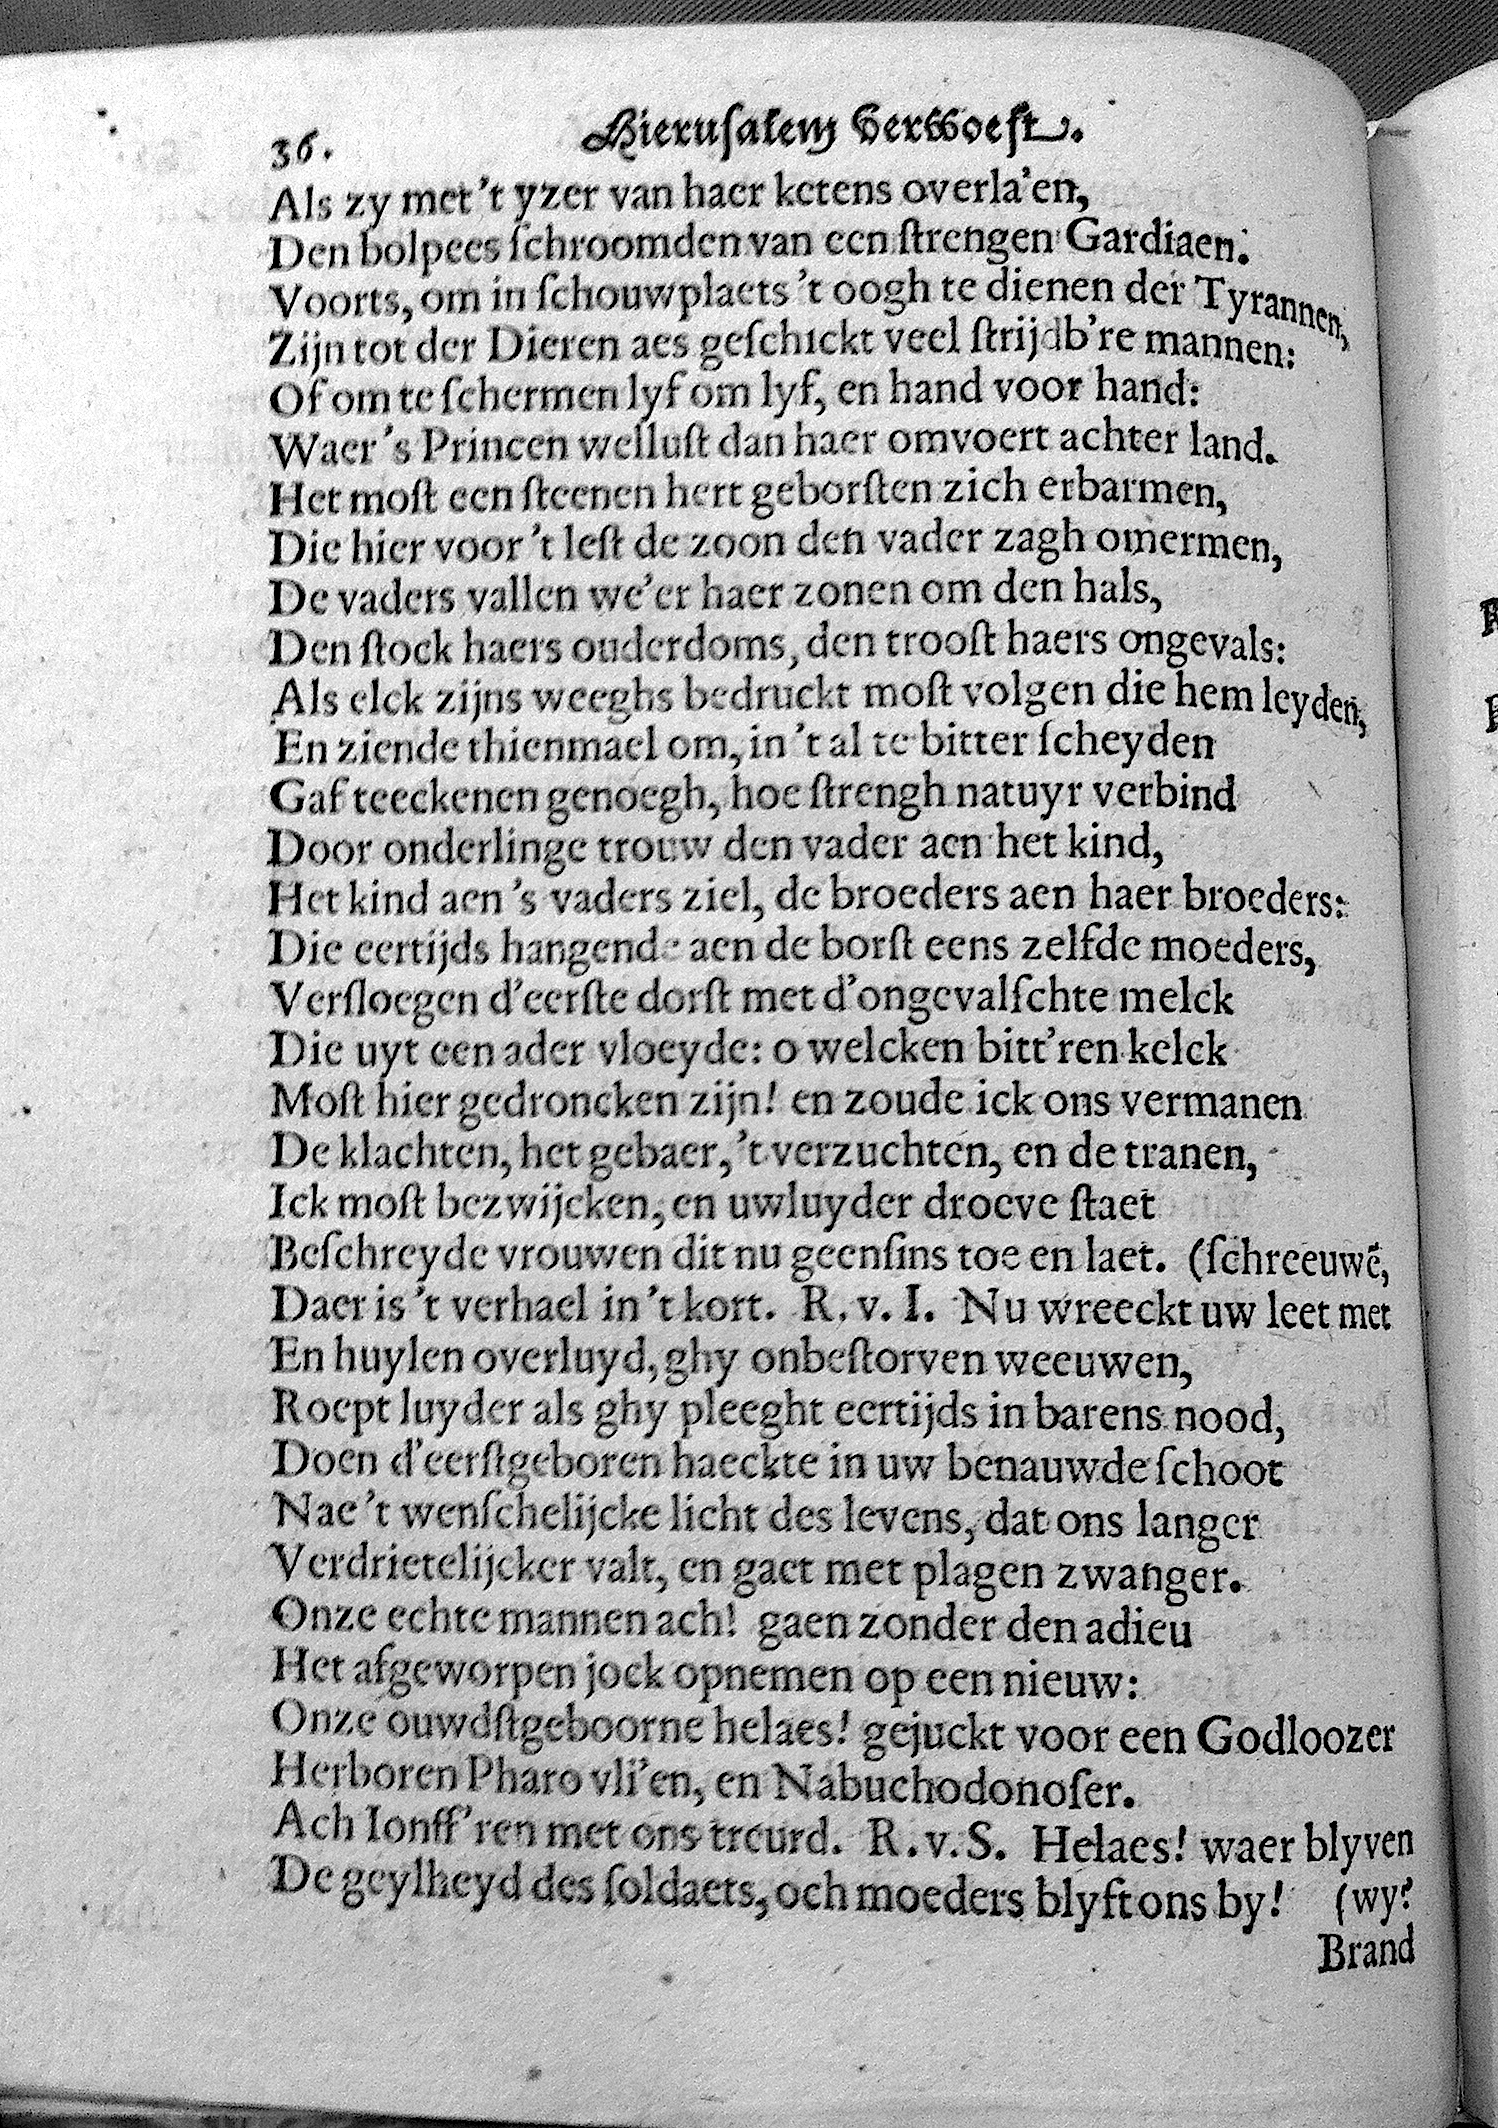 36. Hierusalem Verwoest.
Als zy met 't yzer van haer ketens overla'en,
Den bolpees ſchroomden van een ſtrengen Gardiaen.
Voorts, om in ſchouwplaets 't oogh te dienen der Tyrannen,
Zijn tot der Dieren aes geſchickt veel ſtrijdb're mannen:
Of om te ſchermen lyf om lyf, en hand voor hand:
Waer 's Princen welluſt dan haer omvoert achter land.
Het moſt een ſteenen hert geborſten zich erbarmen,
Die hier voor 't leſt de zoon den vader zagh omermen,
De vaders vallen we'er haer zonen om den hals,
Den ſtock haers ouderdoms, den trooſt haers ongevals:
Als elck zijns weeghs bedruckt moſt volgen die hem leyden,
En ziende thienmael om, in 't al te bitter ſcheyden
Gaf teeckenen genoegh, hoe ſtrengh natuyr verbind
Door onderlinge trouw den vader aen het kind,
Het kind aen 's vaders ziel, de broeders aen haer broeders:
Die eertijds hangende aen de borſt eens zelfde moeders,
Verſloegen d'eerſte dorſt met d'ongevalſchte melck
Die uyt een ader vloeyde: o welcken bitt'ren kelck
Moſt hier gedroncken zijn! en zoude ick ons vermanen
De klachten, het gebaer, 't verzuchten, en de tranen,
Ick moſt bezwijcken, en uwluyder droeve ſtaet
Beſchreyde vrouwen dit nu geenſins toe en laet. (ſchreeuwē,
Daer is 't verhael in 't kort. R. v. I. Nu wreeckt uw leet met
En huylen overluyd, ghy onbeſtorven weeuwen,
Roept luyder als ghy pleeght eertijds in barens nood,
Doen d'eerſtgeboren haeckte in uw benauwde ſchoot
Nae 't wenſchelijcke licht des levens, dat ons langer
Verdrietelijcker valt, en gaet met plagen zwanger.
Onze echte mannen ach! gaen zonder den adieu
Het afgeworpen jock opnemen op een nieuw:
Onze ouwdſtgeboorne helaes! gejuckt voor een Godloozer
Herboren Pharo vli'en, en Nabuchodonoſer.
Ach Ionff'ren met ons treurd. R. v. S. Helaes! waer blyven
De geylheyd des ſoldaets, och moeders blyft ons by! (wy?
Brand